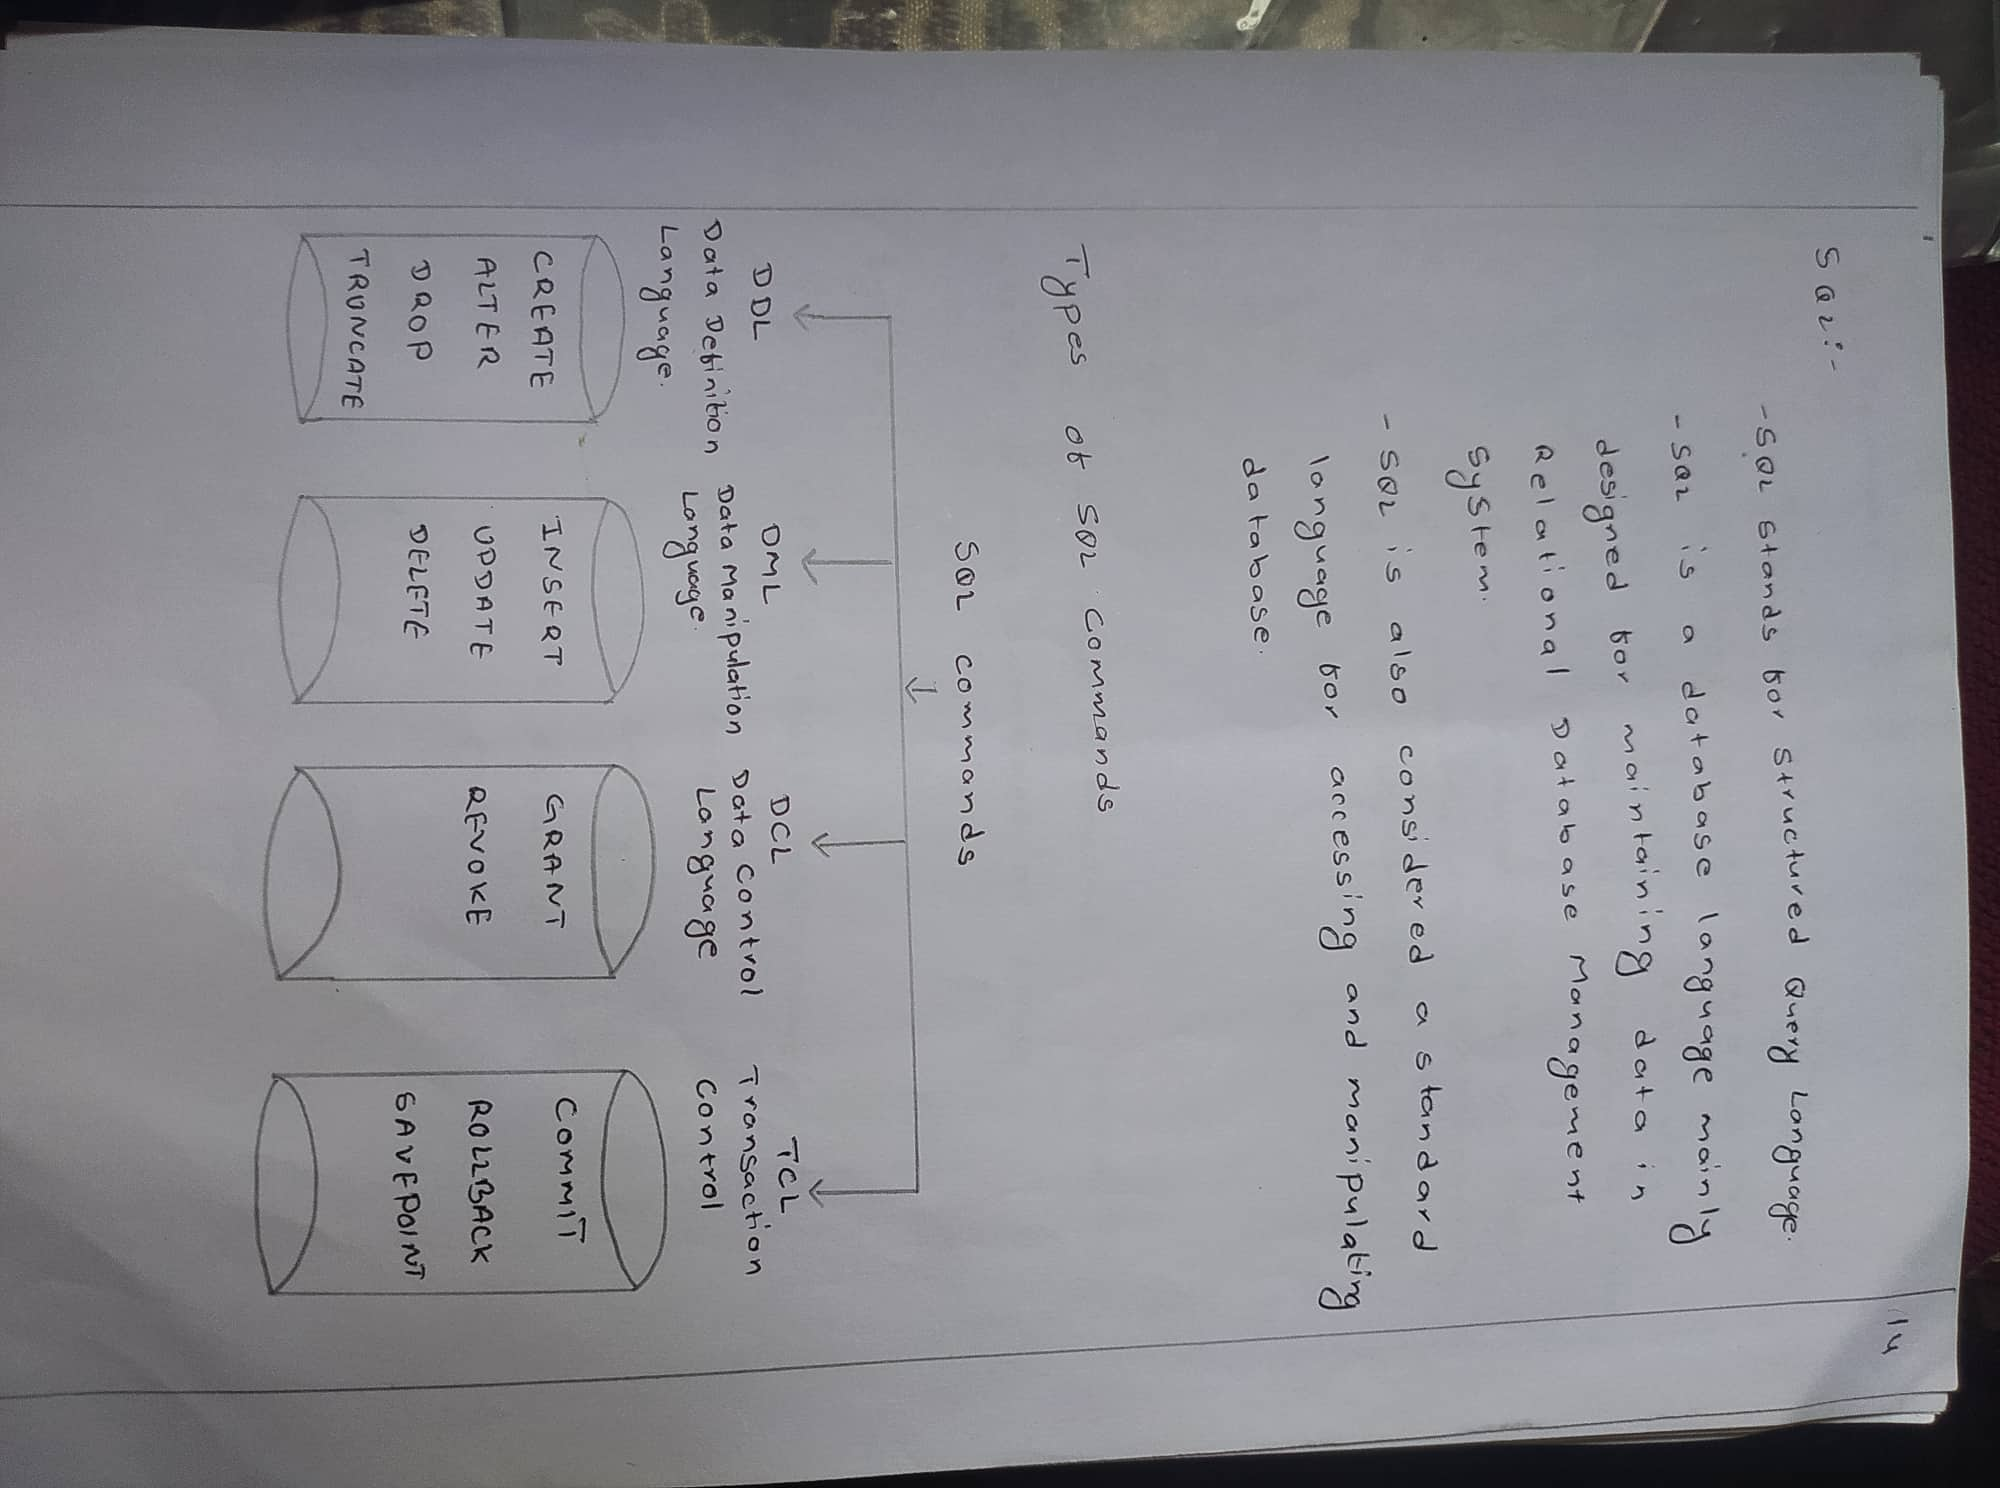 14
SQL:-
- SQL stands for Structured Query Language.
- SQL is a database language mainly
designed for maintaining data in
Relational Database Management
System.
- SQL is also considered a standard
language for accessing and manipulating
database.
Types of SQL Commands
SQL commands
DDL
Data Definition
Language.
CREATE
ALTER
DROP
TRUNCATE
DML
Data Manipulation
Language.
INSERT
UPDATE
DELETE
DCL
Data Control
Language
GRANT
REVOKE
TCL
Transaction
Control
COMMIT
ROLLBACK
SAVEPOINT